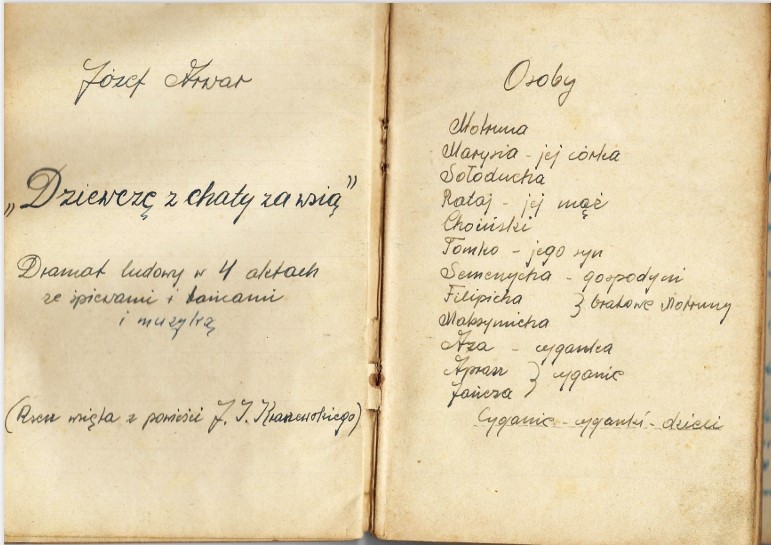 Józef Arwar
„Dziewczę z chaty za wsią”
Dramat ludowy w 4 aktach
ze śpiewami i tańcami
i muzyką
(Rzecz wzięta z powieści J. I. Kraszewskiego)
Osoby
Motruna
Marysia - jej córka
Sołoducha
Rataj - jej mąż
Choiński
Tomko - jego syn
Semenycha - gospodyni
Filipicha } bratowe Motruny
Maksymicha
Aza - cyganka
Aprasz } cyganie
Jańcza
Cyganie - cyganki - dzieci